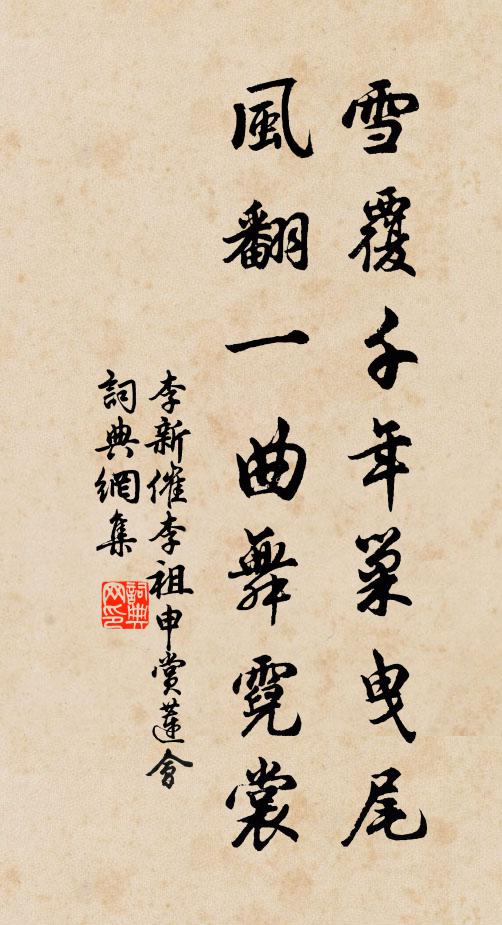 雪覆千年巢曳尾
風翻一曲舞霓裳
李新催李祖申賞蓮會
詞典網集
詞典
网印